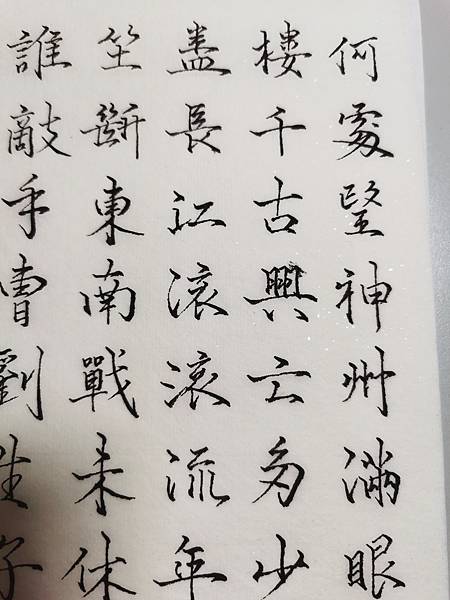 何處朢神州滿眼
樓千古興亡多少
盡長江滾滾流年
坐斷東南戰未休
誰敵手曹劉生子